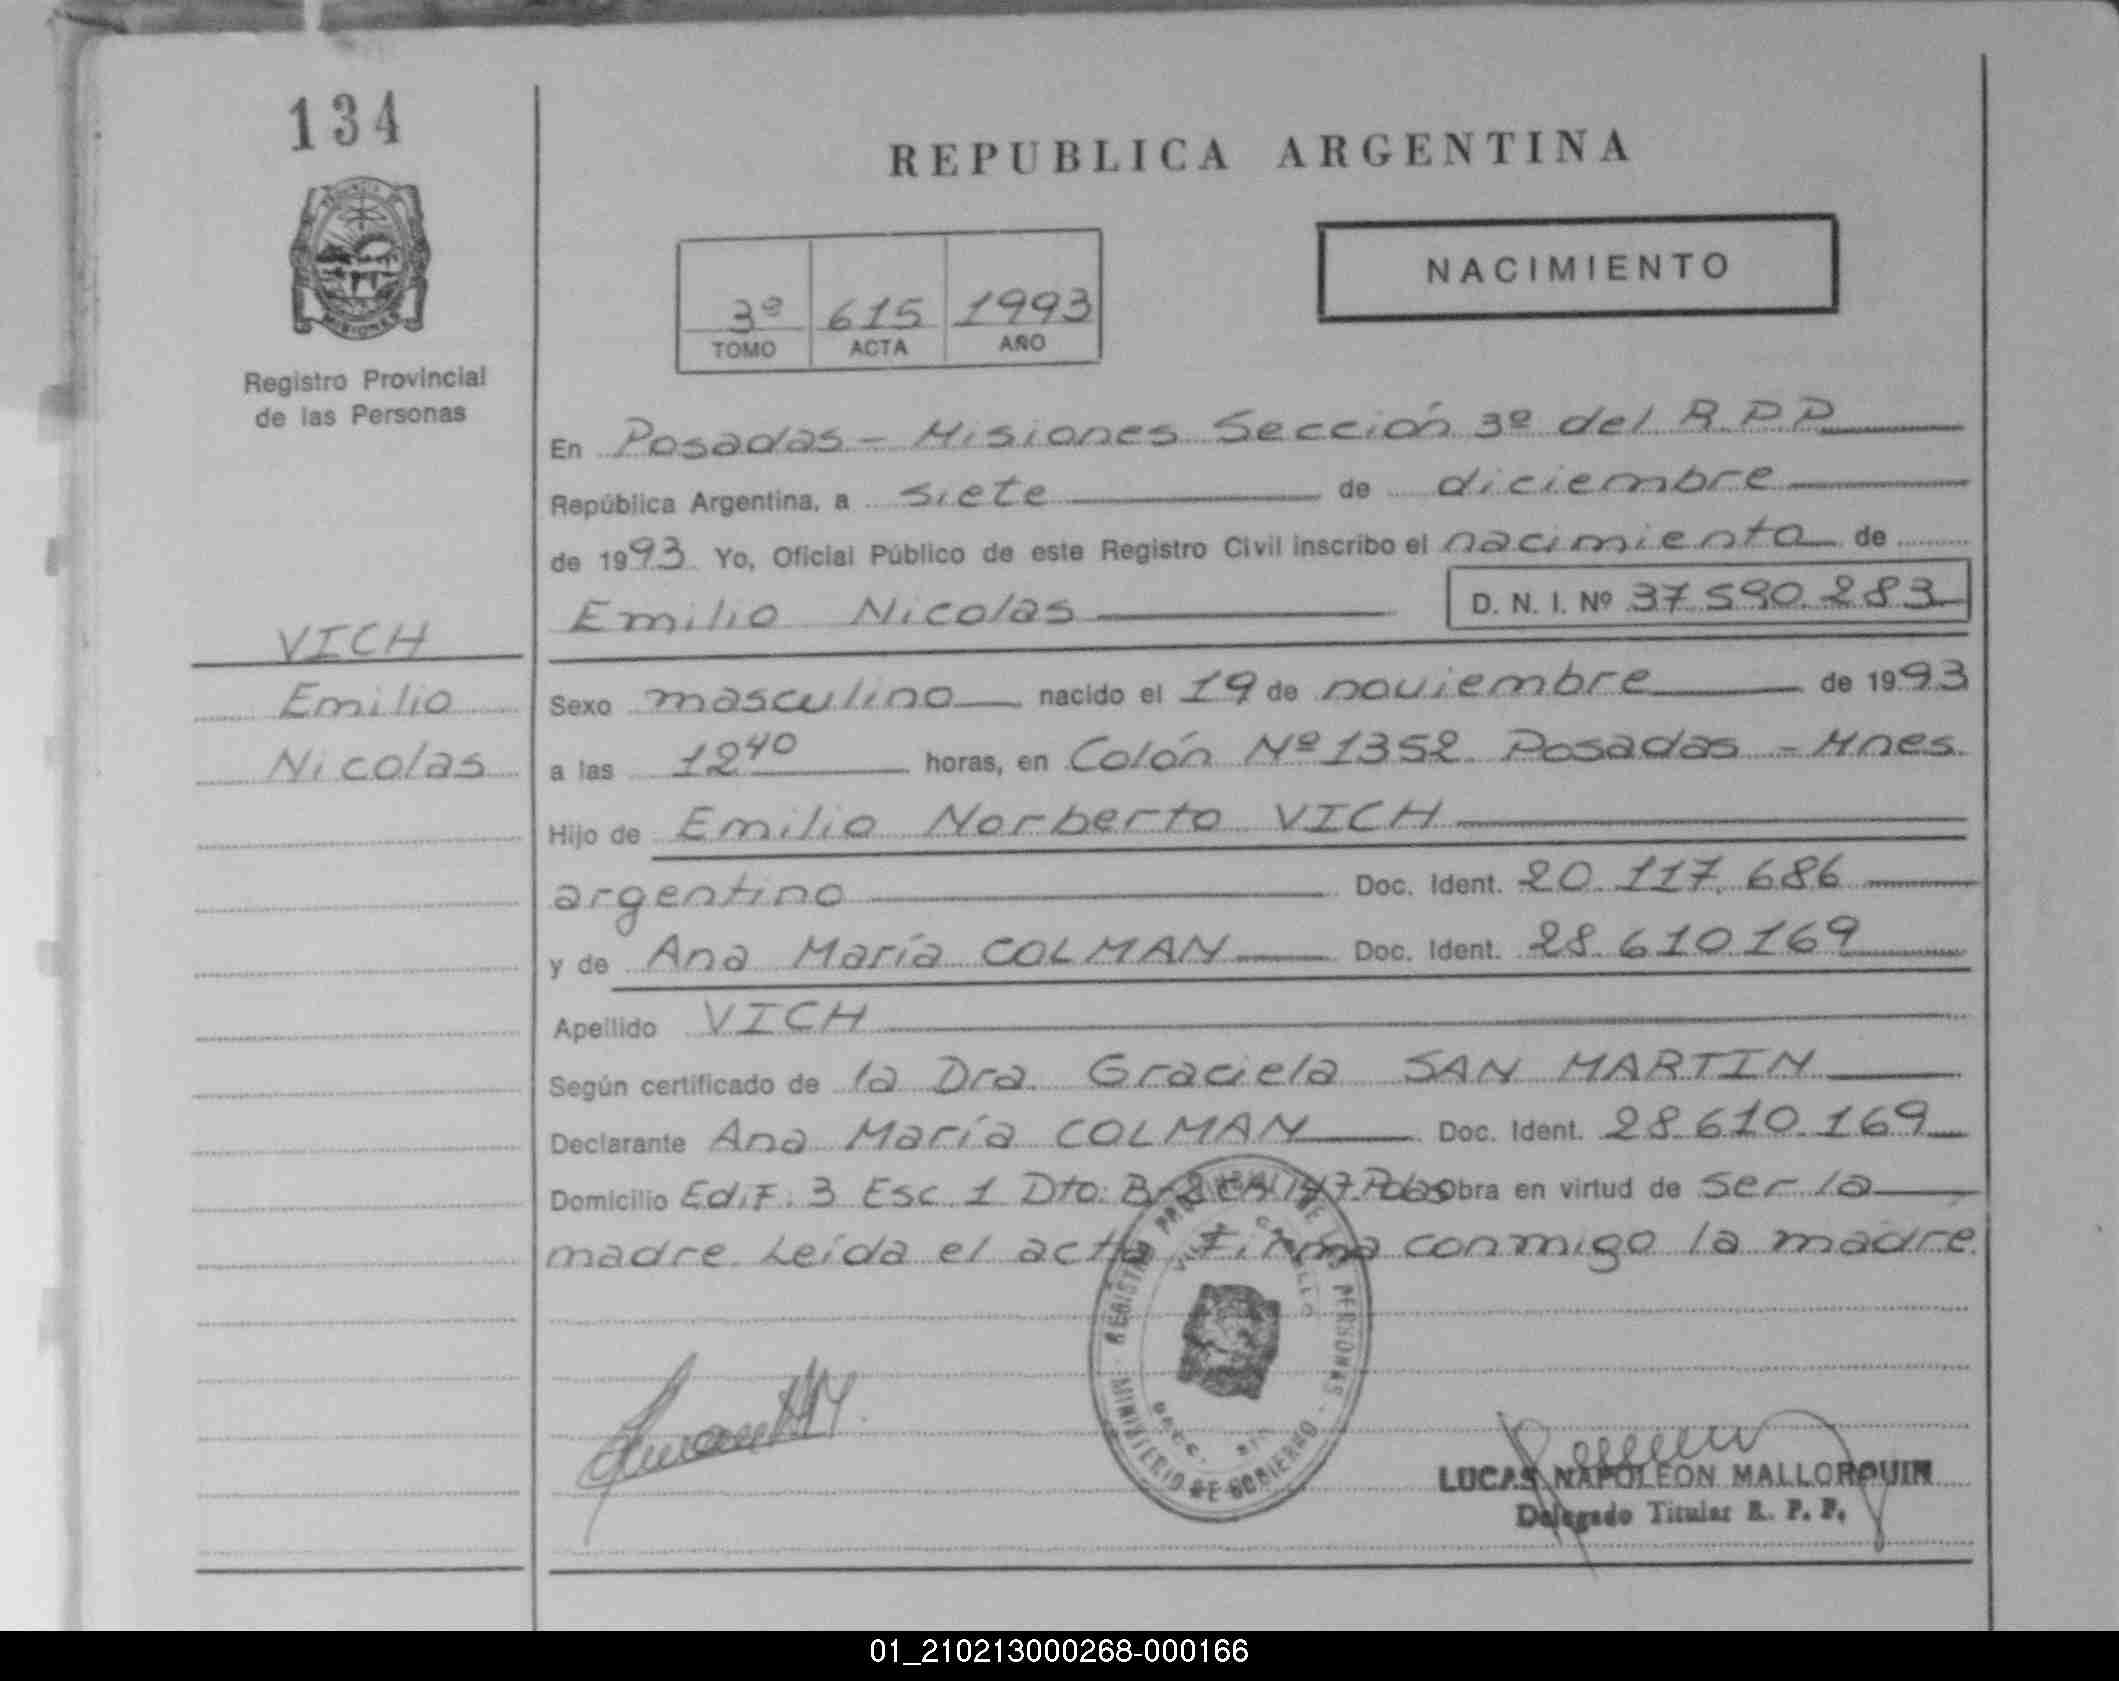 134
REPUBLICA ARGENTINA
NACIMIENTO
3º 615 1993
TOMO ACTA AÑO
MISIONES
Registro Provincial
de las Personas
En Posadas - Misiones Sección 3º del R.P.P.
República Argentina, a siete de diciembre
de 1993 Yo, Oficial Público de este Registro Civil inscribo el nacimiento de
Emilio Nicolas D. N. I. Nº 37.590.283
VICH
Emilio
Nicolas
Sexo masculino nacido el 19 de noviembre de 1993
a las 12 40 horas, en Colón Nº 1352 Posadas - Mnes.
Hijo de Emilio Norberto VICH
argentino Doc. Ident. 20.117.686
y de Ana María COLMAN Doc. Ident. 28.610.169
Apellido VICH
Según certificado de la Dra. Graciela SAN MARTIN
Declarante Ana María COLMAN Doc. Ident. 28.610.169
Domicilio Edif. 3 Esc. 1 Dto. Obra en virtud de ser la
madre. Leída el acta firma conmigo la madre.
REGISTRO PERSONAS
MINISTERIO DE GOBIERNO
LUCAS NAPOLEON MALLORQUIN
Delegado Titular R. P. P.
01_210213000268-000166